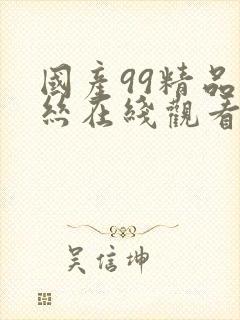 國產99精品
絲在綫觀看
吳信坤